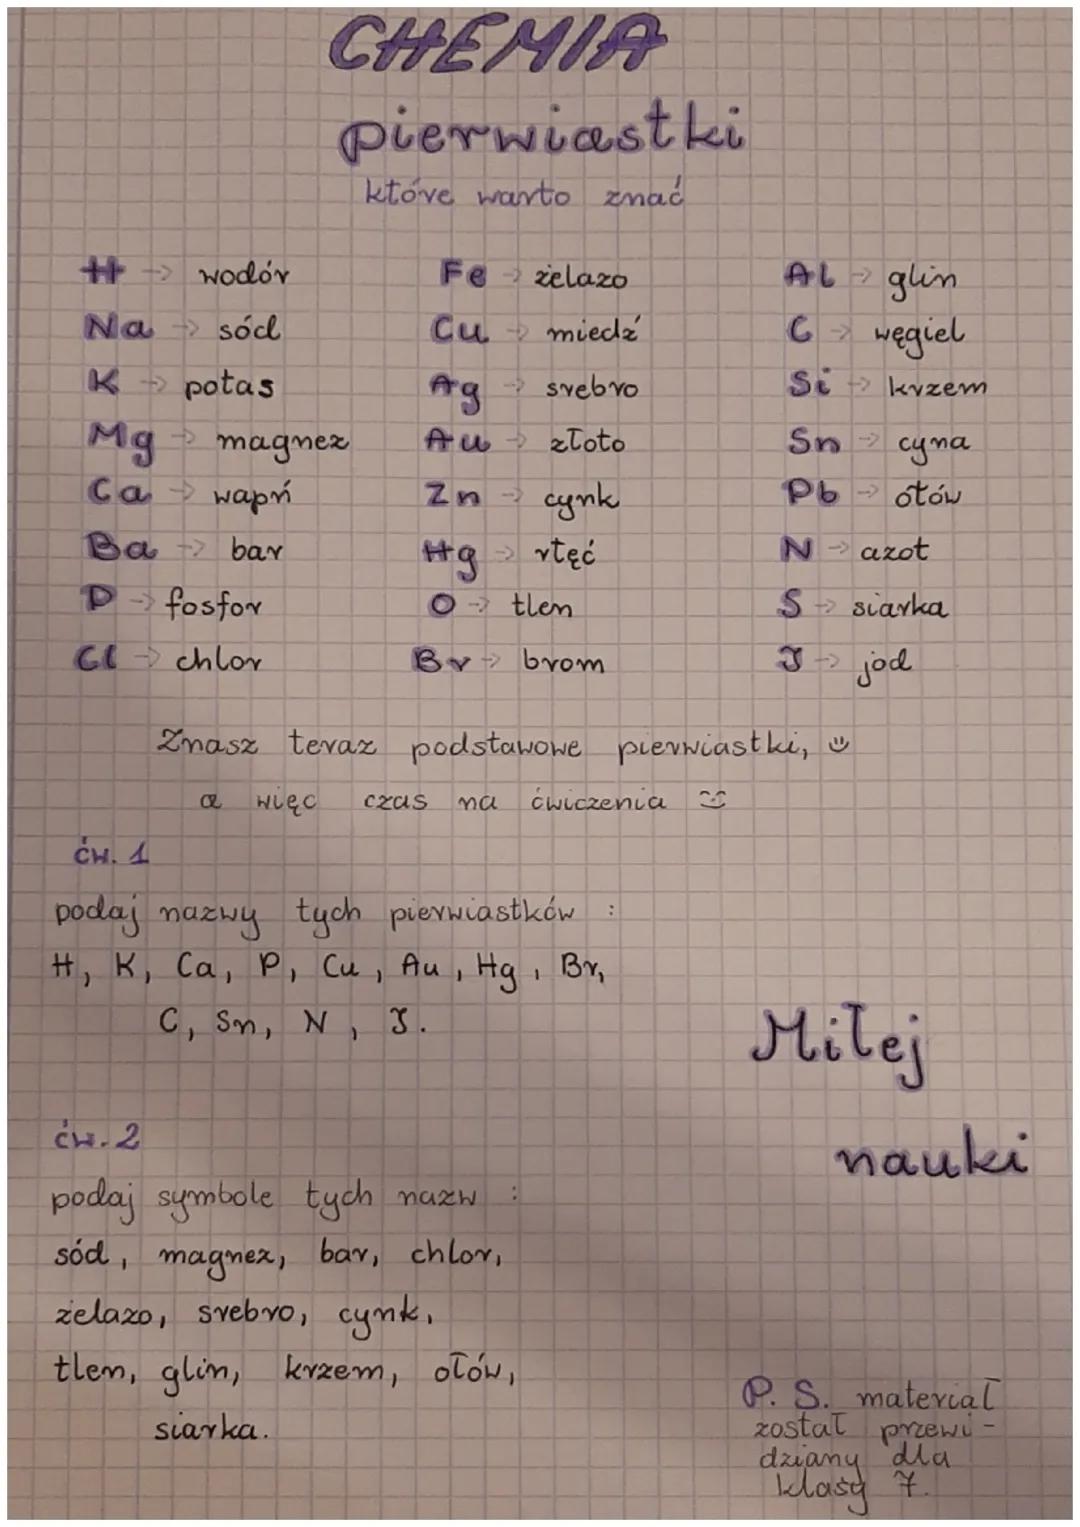 CHEMIA
pierwiastki
które warto znać
H → wodór
Na → sód
K → potas
Mg → magnez
Ca → wapń
Ba → bar
P → fosfor
Cl → chlor
Fe → żelazo
Cu → miedź
Ag → srebro
Au → złoto
Zn → cynk
Hg → rtęć
O → tlen
Br → brom
Al → glin
C → węgiel
Si → krzem
Sn → cyna
Pb → ołów
N → azot
S → siarka
J → jod
Znasz teraz podstawowe pierwiastki, ☺
a więc czas na ćwiczenia ☺
ćw. 1
podaj nazwy tych pierwiastków :
H, K, Ca, P, Cu, Au, Hg, Br,
C, Sn, N, J.
ćw. 2
podaj symbole tych nazw :
sód, magnez, bar, chlor,
żelazo, srebro, cynk,
tlen, glin, krzem, ołów,
siarka.
Miłej
nauki
P. S. materiał
został przewi-
dziany dla
klasy 7.